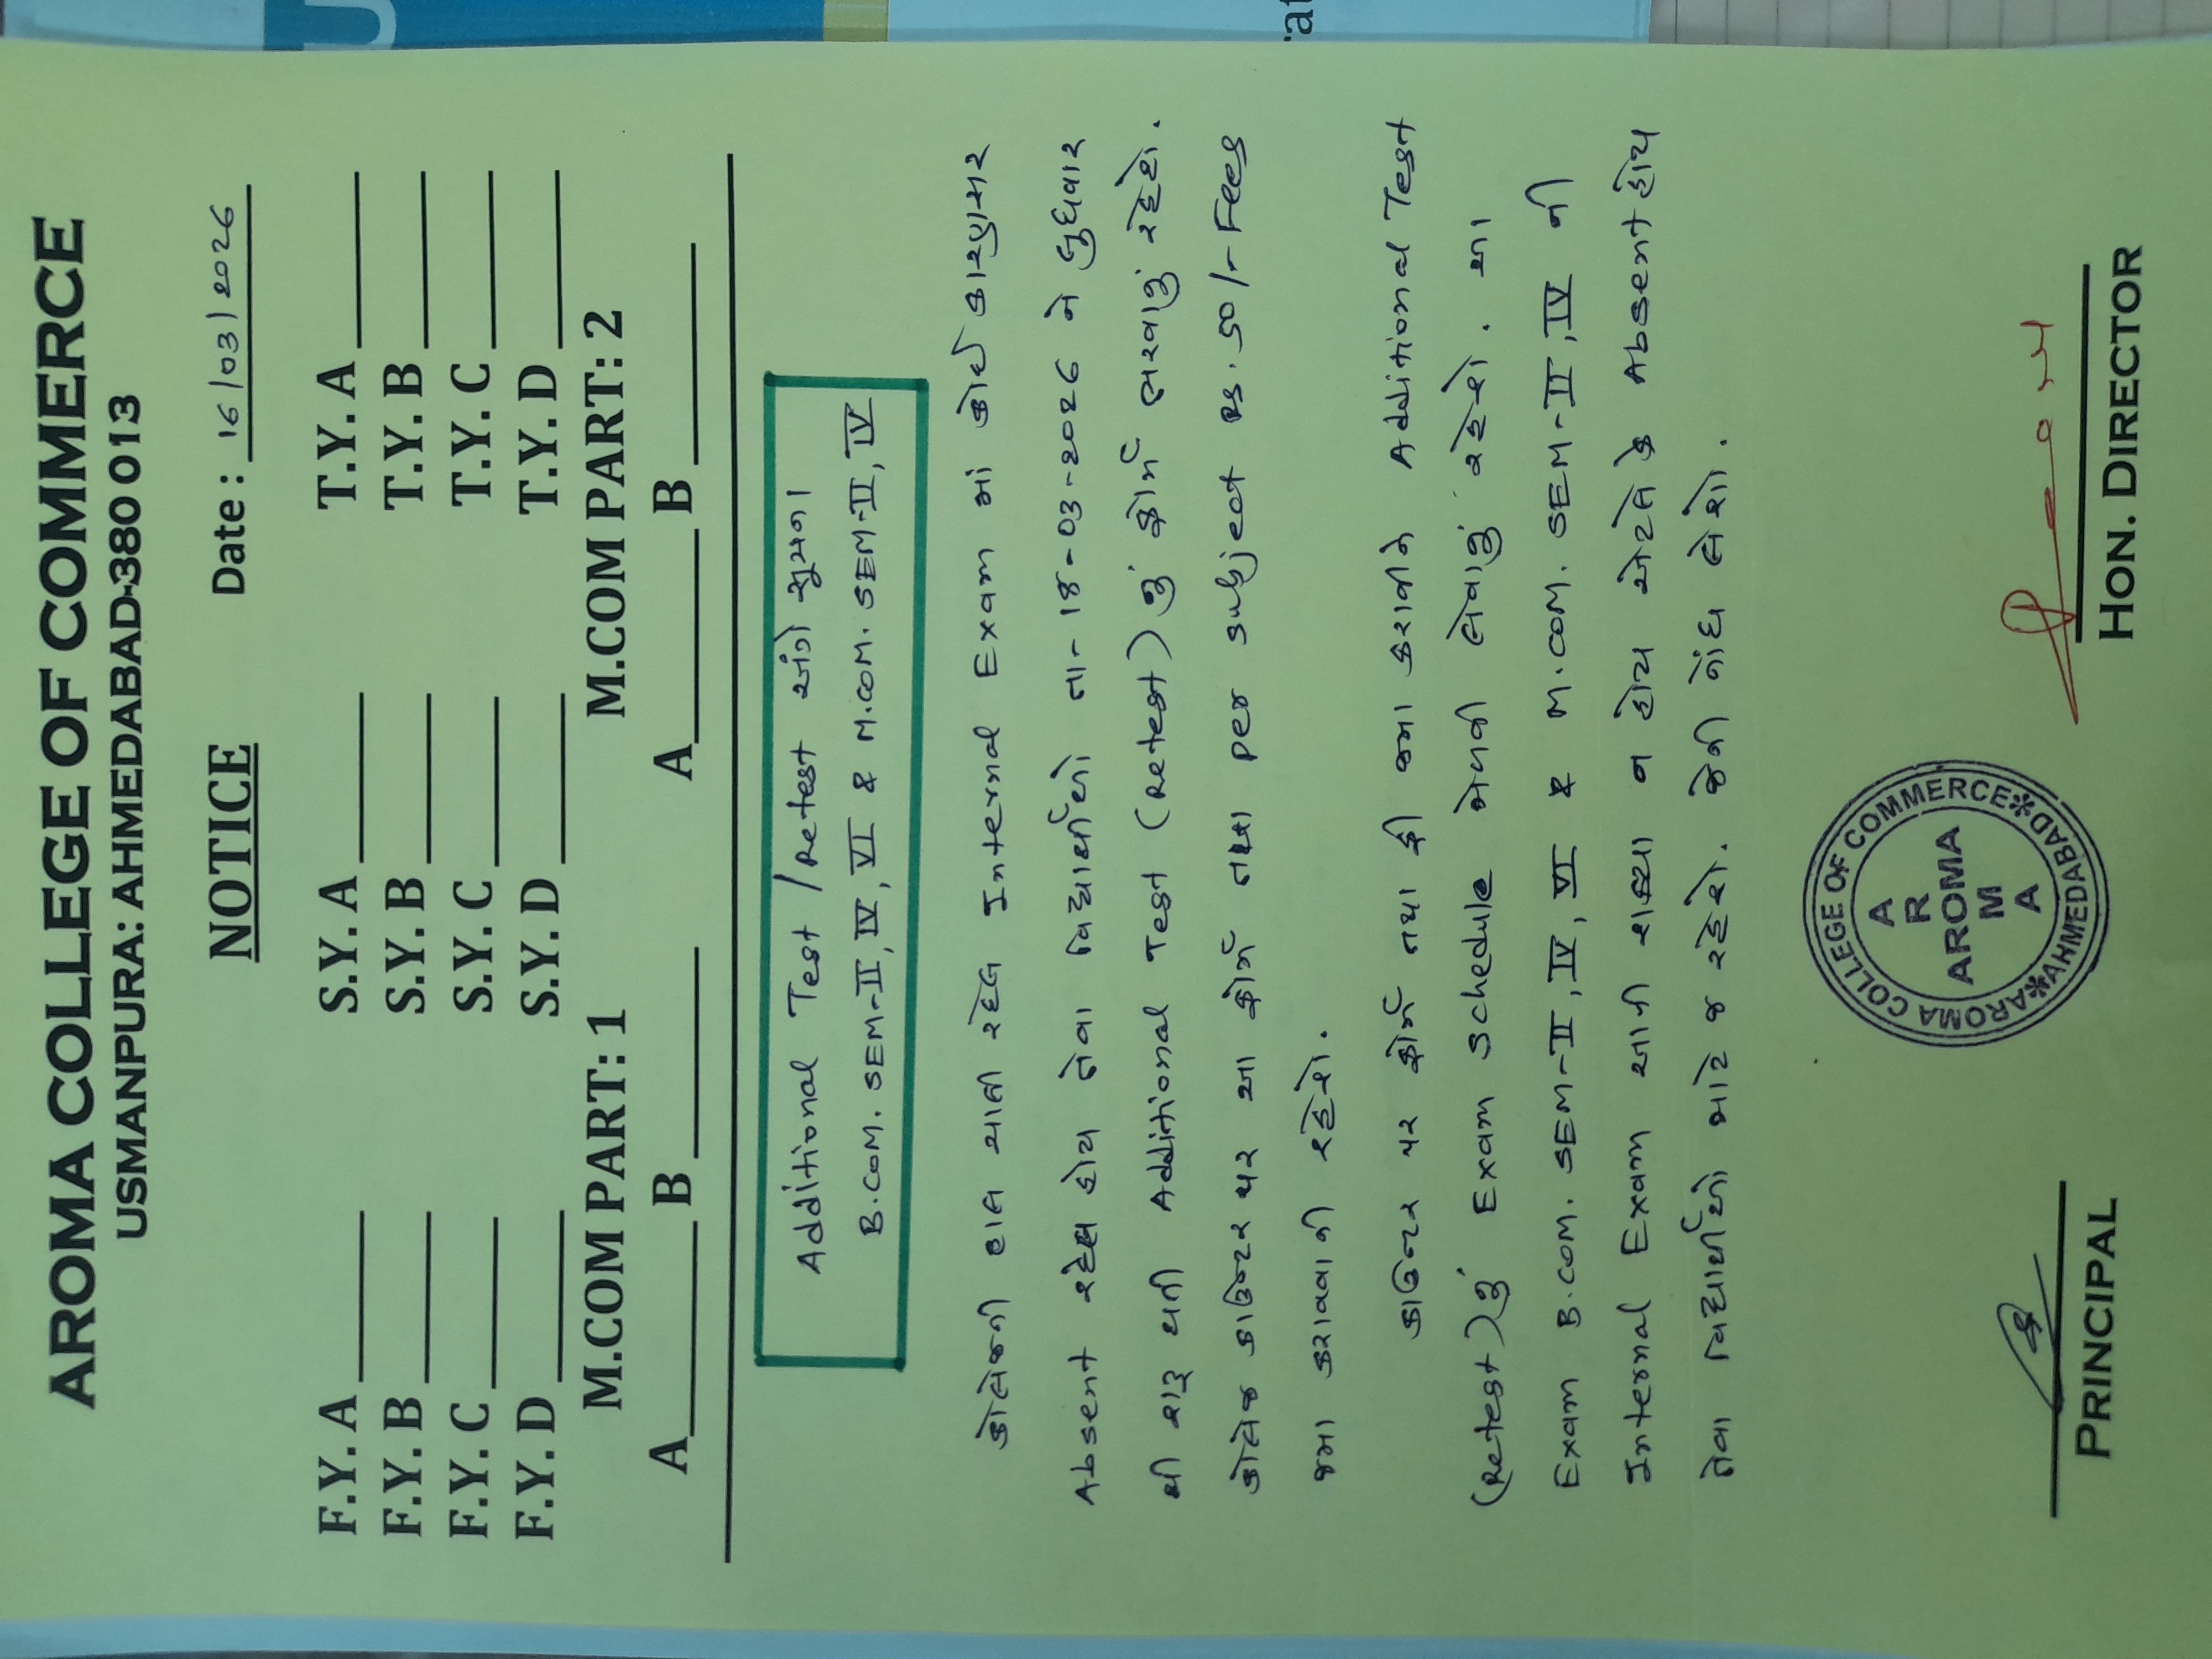 AROMA COLLEGE OF COMMERCE
USMANPURA: AHMEDABAD-380 013
NOTICE Date : 16/03/2026
F.Y. A S.Y. A T.Y. A
F.Y. B S.Y. B T.Y. B
F.Y. C S.Y. C T.Y. C
F.Y. D S.Y. D T.Y. D
M.COM PART: 1 M.COM PART: 2
A B A B
Additional Test /Retest અંગે સૂચના
B.COM. SEM-II, IV, VI & M.COM. SEM-II, IV
કોલેજની હાલ ચાલી રહેલ Internal Exam માં કોઈ કારણસર
Absent રહેલ હોય તેવા વિદ્યાર્થીઓ તા-18-03-2026 ને બુધવાર
થી શરૂ થતી Additional Test (Retest) નું ફોર્મ ભરવાનું રહેશે.
કોલેજ કાઉન્ટર પર આ ફોર્મ તથા per subject Rs. 50/- Fees
જમા કરાવવાની રહેશે.
કાઉન્ટર પર ફોર્મ તથા ફી જમા કરાવીને Additional Test
(Retest) નું Exam Schedule મેળવી લેવાનું રહેશે. આ
Exam B.COM. SEM-II, IV, VI & M.COM. SEM-II, IV ની
Internal Exam આપી શક્યા ન હોય એટલે કે Absent હોય
તેવા વિદ્યાર્થીઓ માટે જ રહેશે. જેની નોંધ લેશો.
AROMA COLLEGE OF COMMERCE
AHMEDABAD
A
R
AROMA
M
A
PRINCIPAL HON. DIRECTOR